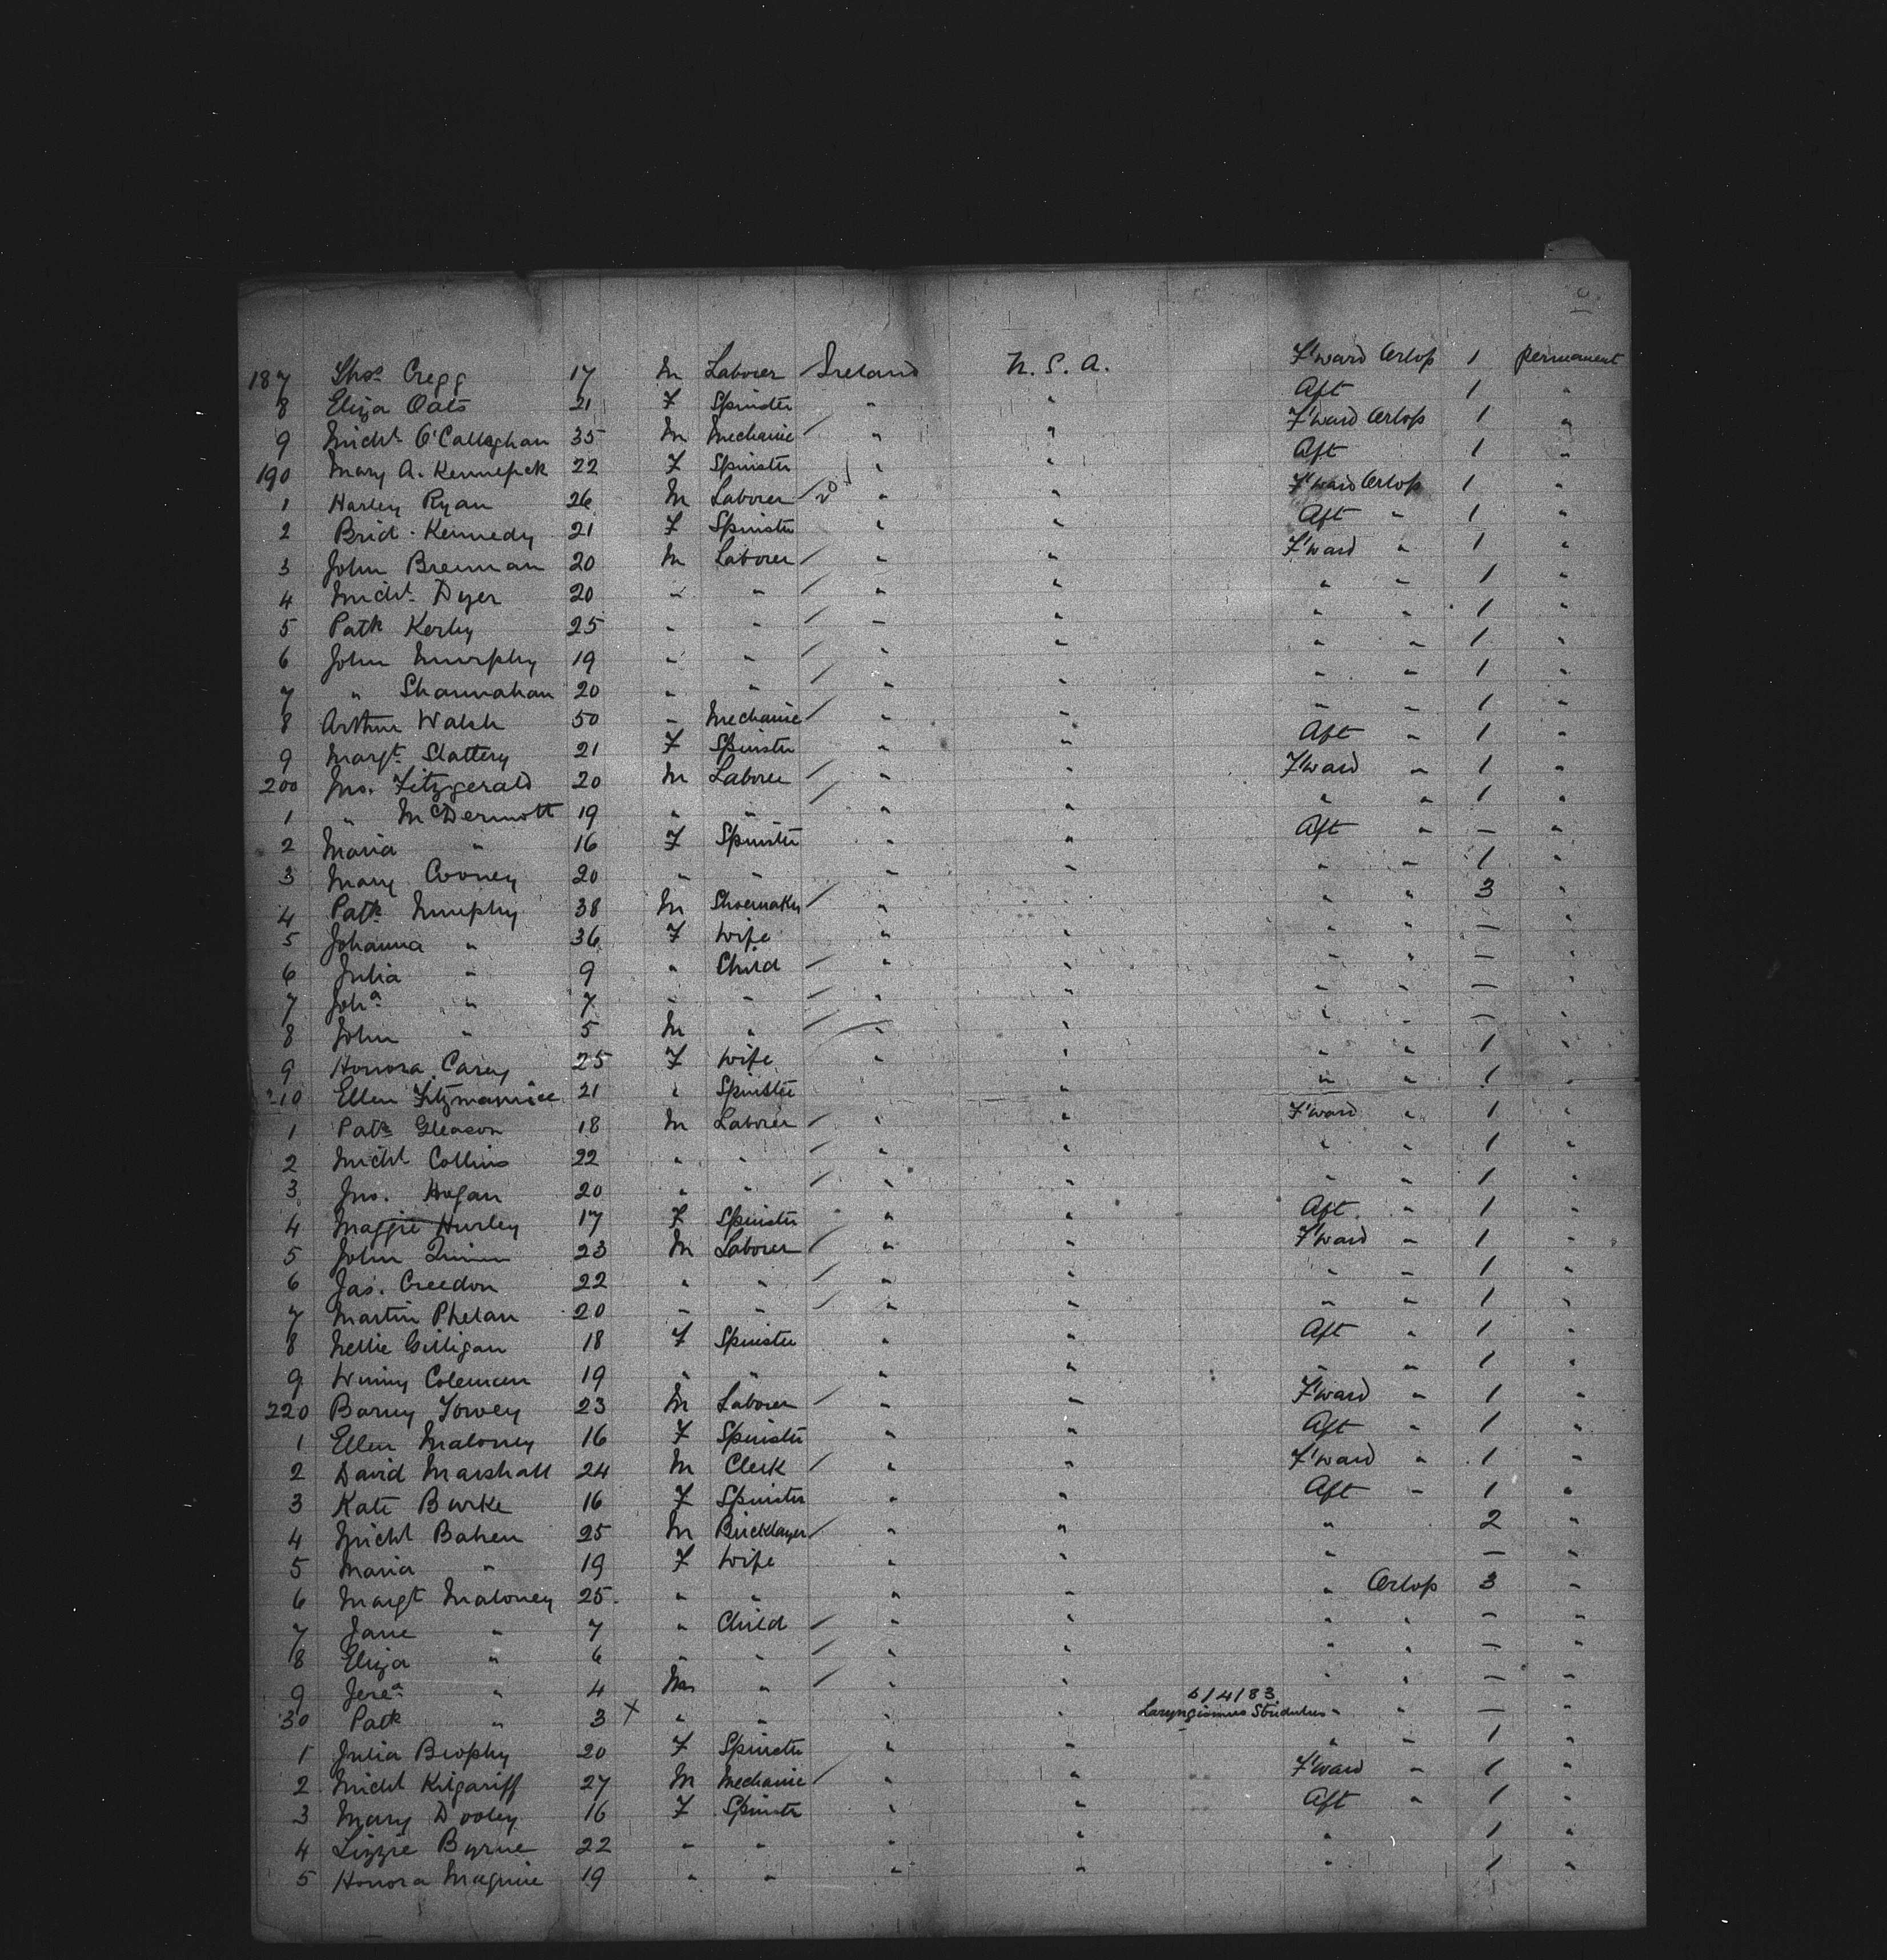 187 Thos Cregg 17 M Laborer Ireland U.S.A. F'ward Orlop 1 permanent
8 Eliza Oats 21 F Spinster " " Aft 1 "
9 Michl O'Callaghan 35 M Mechanic " " F'ward Orlop 1 "
190 Mary A. Kennefick 22 F Spinster " " Aft 1 "
1 Harley Ryan 26 M Laborer " " F'ward Orlop 1 "
2 Brid. Kennedy 21 F Spinster " " Aft " 1 "
3 John Brennan 20 M Laborer " " F'ward " 1 "
4 Michl Dyer 20 " " " " " " 1 "
5 Patk Kerby 25 " " " " " " 1 "
6 John Murphy 19 " " " " " " 1 "
7 " Shannahan 20 " " " " " " 1 "
8 Arthur Walsh 50 " Mechanic " " " " 1 "
9 Margt Slattery 21 F Spinster " " Aft " 1 "
200 Jno. Fitzgerald 20 M Laborer " " F'ward " 1 "
1 " McDermott 19 " " " " " " 1 "
2 Maria " 16 F Spinster " " Aft " — "
3 Mary Cooney 20 " " " " " " 1 "
4 Patk Murphy 38 M Shoemaker " " " " 3 "
5 Johanna " 36 F Wife " " " " — "
6 Julia " 9 " Child " " " " — "
7 Joha " 7 " " " " " " — "
8 John " 5 M " " " " " — "
9 Honora Carey 25 F Wife " " " " 1 "
210 Ellen Fitzmaurice 21 " Spinster " " " " 1 "
1 Patk Gleason 18 M Laborer " " F'ward " 1 "
2 Michl Collins 22 " " " " " " 1 "
3 Jno. Hogan 20 " " " " " " 1 "
4 Maggie Hurley 17 F Spinster " " Aft " 1 "
5 John Quinn 23 M Laborer " " F'ward " 1 "
6 Jas. Creedon 22 " " " " " " 1 "
7 Martin Phelan 20 " " " " " " 1 "
8 Nellie Gilligan 18 F Spinster " " Aft " 1 "
9 Winny Coleman 19 " " " " " " 1 "
220 Barney Towey 23 M Laborer " " F'ward " 1 "
1 Ellen Maloney 16 F Spinster " " Aft " 1 "
2 David Marshall 24 M Clerk " " F'ward " 1 "
3 Kate Burke 16 F Spinster " " Aft " 1 "
4 Michl Bahen 25 M Bricklayer " " " 2 "
5 Maria " 19 F Wife " " " — "
6 Margt Maloney 25 " " " " " Orlop 3 "
7 Jane " 7 " Child " " " " — "
8 Eliza " 6 " " " " " " — "
9 Jerea " 4 M " " " " " — "
6/4/83
30 Patk " 3 X " " " " Laryngismus Stridulus " " — "
1 Julia Brophy 20 F Spinster " " " " 1 "
2 Michl Kilgariff 27 M Mechanic " " F'ward " 1 "
3 Mary Dooley 16 F Spinster " " Aft " 1 "
4 Lizzie Byrne 22 " " " " " 1 "
5 Honora Maguire 19 " " " " " 1 "